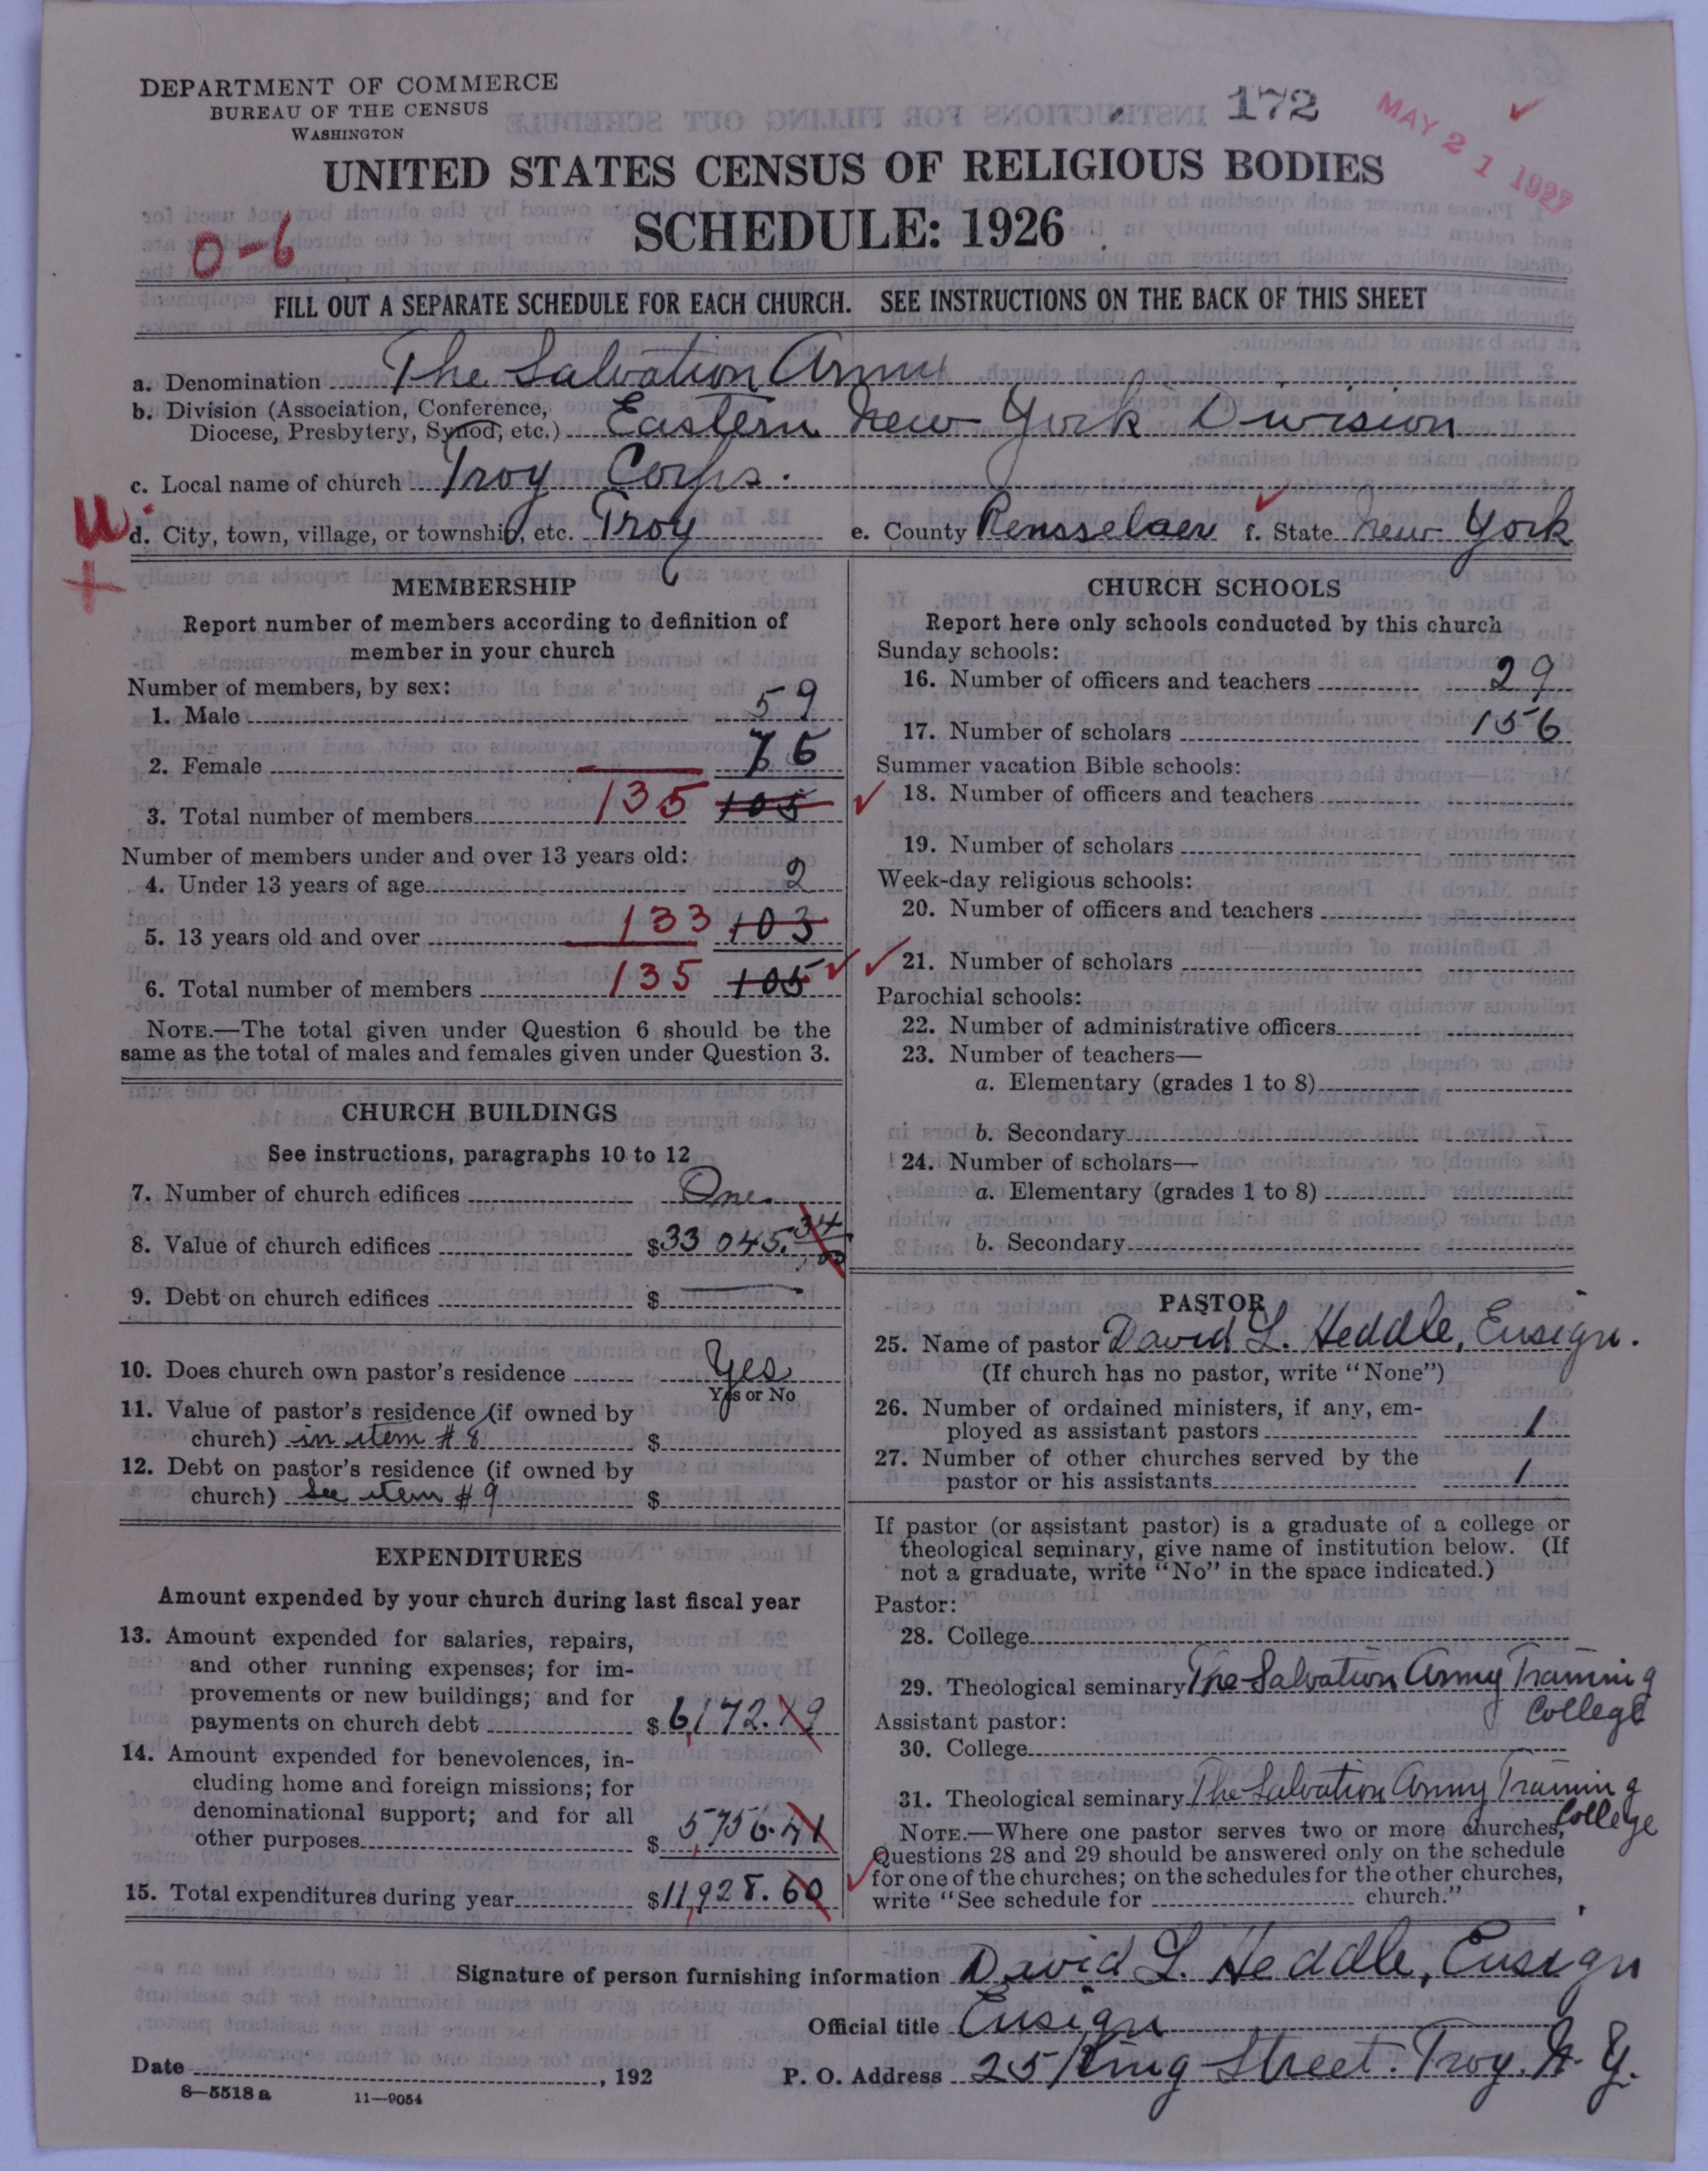 DEPARTMENT OF COMMERCE
BUREAU OF THE CENSUS
WASHINGTON
172
MAY 21 1927
UNITED STATES CENSUS OF RELIGIOUS BODIES
SCHEDULE: 1926
0-6
FILL OUT A SEPARATE SCHEDULE FOR EACH CHURCH. SEE INSTRUCTIONS ON THE BACK OF THIS SHEET
a. Denomination The Salvation Army
b. Division (Association, Conference,
Diocese, Presbytery, Synod, etc.) Eastern New York Division
c. Local name of church Troy Corps.
d. City, town, village, or township, etc. Troy e. County Rensselaer f. State New York
MEMBERSHIP
Report number of members according to definition of
member in your church
Number of members, by sex:
1. Male 59
2. Female 76
3. Total number of members 135 105
Number of members under and over 13 years old:
4. Under 13 years of age 2
5. 13 years old and over 133 103
6. Total number of members 135 105
NOTE.—The total given under Question 6 should be the
same as the total of males and females given under Question 3.
CHURCH BUILDINGS
See instructions, paragraphs 10 to 12
7. Number of church edifices One.
8. Value of church edifices $33 045.34
9. Debt on church edifices $
10. Does church own pastor's residence Yes
Yes or No
11. Value of pastor's residence (if owned by
church) in item #8 $
12. Debt on pastor's residence (if owned by
church) See item #9 $
EXPENDITURES
Amount expended by your church during last fiscal year
13. Amount expended for salaries, repairs,
and other running expenses; for im-
provements or new buildings; and for
payments on church debt $6,172.19
14. Amount expended for benevolences, in-
cluding home and foreign missions; for
denominational support; and for all
other purposes $5,756.41
15. Total expenditures during year $11,928.60
CHURCH SCHOOLS
Report here only schools conducted by this church
Sunday schools:
16. Number of officers and teachers 29
17. Number of scholars 156
Summer vacation Bible schools:
18. Number of officers and teachers
19. Number of scholars
Week-day religious schools:
20. Number of officers and teachers
21. Number of scholars
Parochial schools:
22. Number of administrative officers
23. Number of teachers—
a. Elementary (grades 1 to 8)
b. Secondary
24. Number of scholars—
a. Elementary (grades 1 to 8)
b. Secondary
PASTOR
25. Name of pastor David L. Heddle, Ensign.
(If church has no pastor, write "None")
26. Number of ordained ministers, if any, em-
ployed as assistant pastors 1
27. Number of other churches served by the
pastor or his assistants 1
If pastor (or assistant pastor) is a graduate of a college or
theological seminary, give name of institution below. (If
not a graduate, write "No" in the space indicated.)
Pastor:
28. College
29. Theological seminary The Salvation Army Training
College
Assistant pastor:
30. College
31. Theological seminary The Salvation Army Training
College
NOTE.—Where one pastor serves two or more churches,
Questions 28 and 29 should be answered only on the schedule
for one of the churches; on the schedules for the other churches,
write "See schedule for church."
Signature of person furnishing information David L. Heddle, Ensign
Official title Ensign
Date , 192 P. O. Address 25 King Street. Troy. N. Y.
8—5518a 11—9054